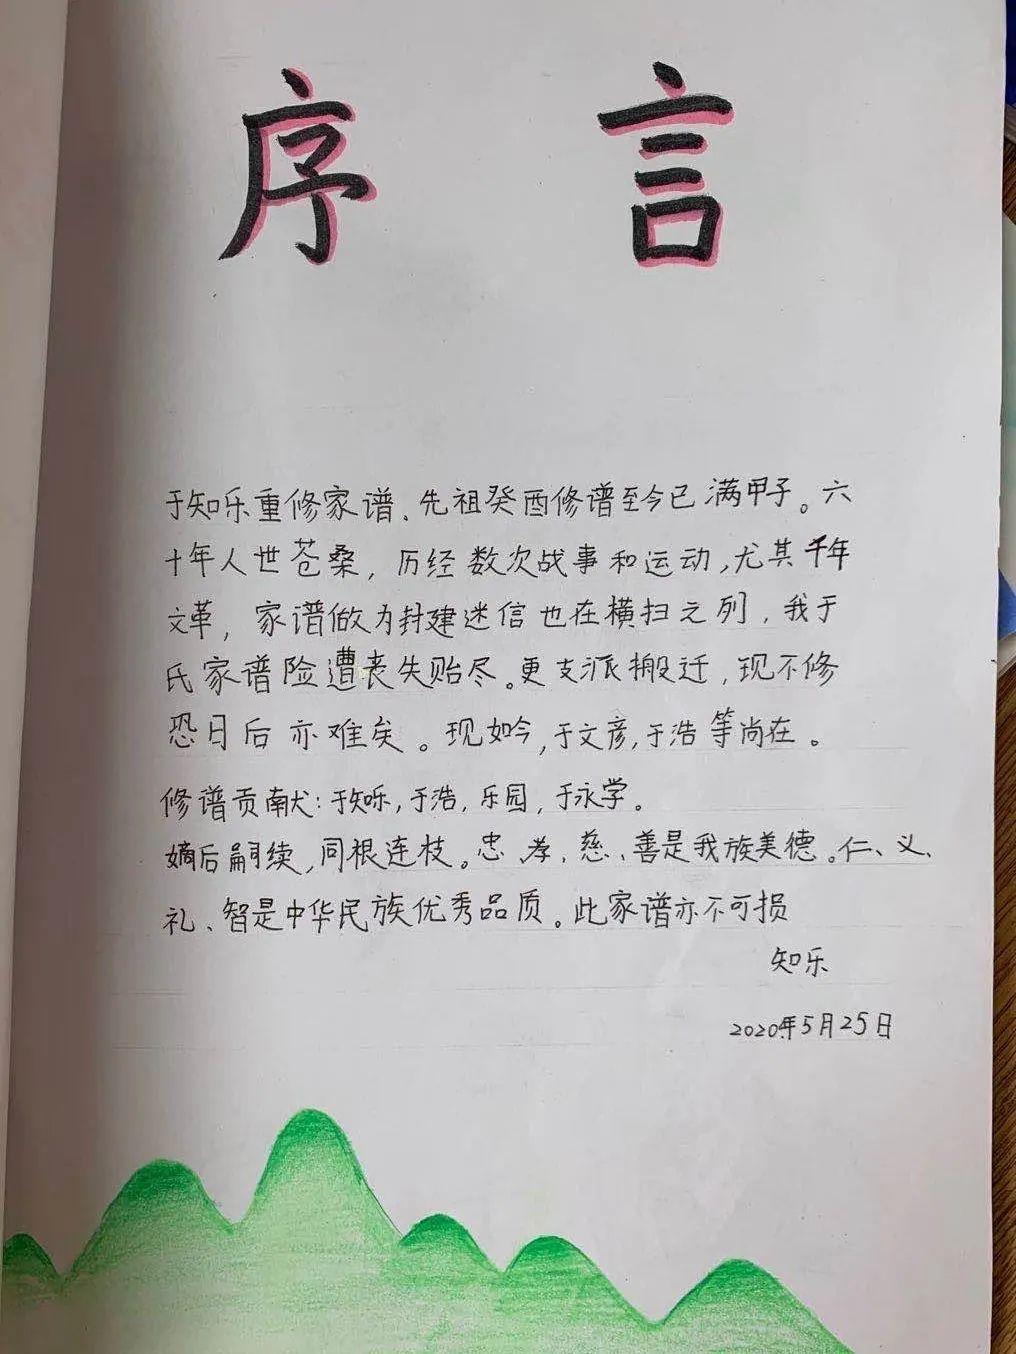 序言
于知乐重修家谱、先祖癸酉修谱至今已满甲子。六
十年人世苍桑，历经数次战事和运动，尤其千年
文革，家谱做为封建迷信也在横扫之列，我于
氏家谱险遭丧失贻尽。更支派搬迁，现不修
恐日后亦难矣。现如今，于文彦，于浩等尚在。
修谱贡献：于知乐，于浩，乐园，于永学。
嫡后嗣续，同根连枝。忠、孝、慈、善是我族美德。仁、义、
礼、智是中华民族优秀品质。此家谱亦不可损
知乐
2020年5月25日